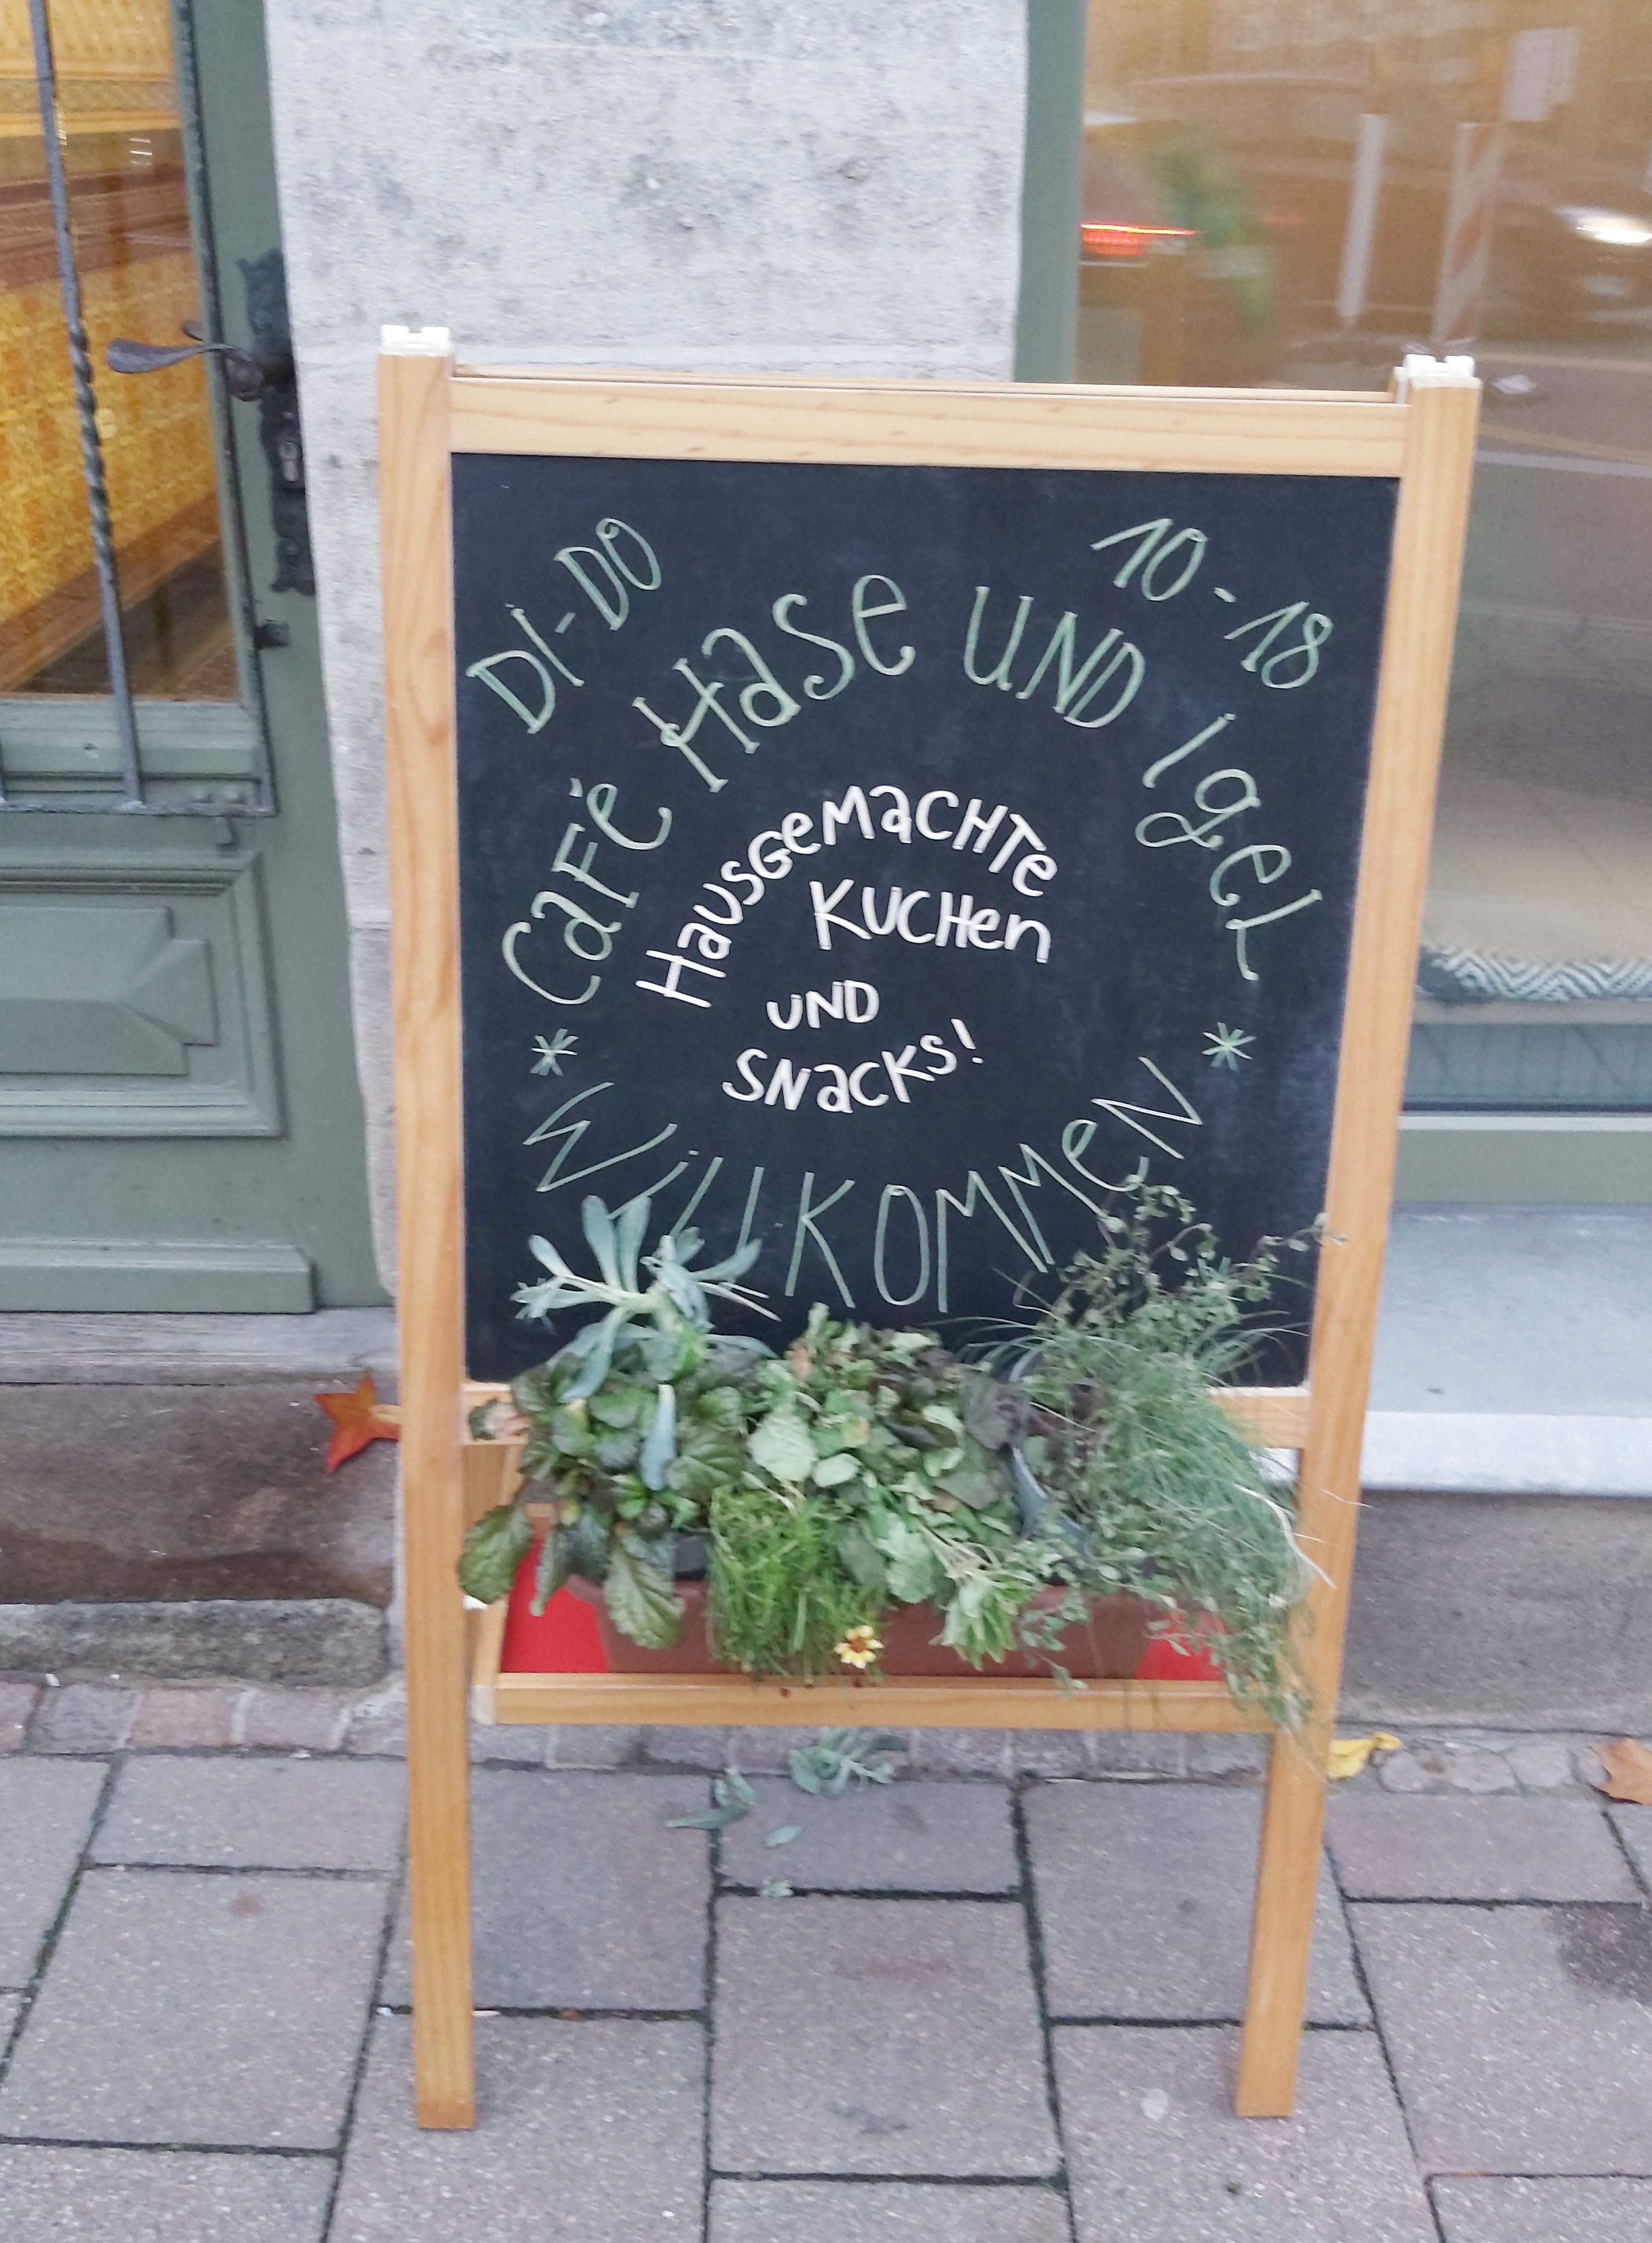 DI-DO
10-18
Café Hase UND Igel
Hausgemachte
Kuchen
UND
Snacks!
* Willkommen *